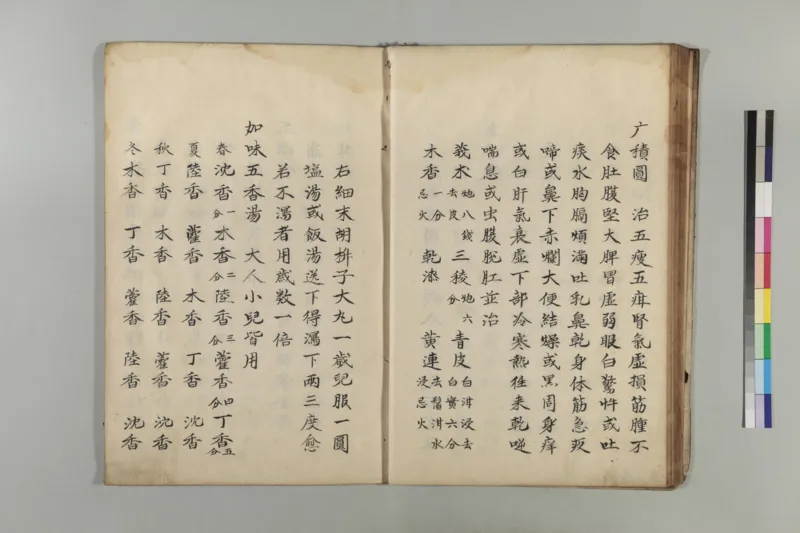 广積圓　治五瘦五疳腎氣虛損筋腫不
食肚腹堅大脾胃虛弱眼白驚忤或吐
痰水胸膈煩滿吐乳鼻乾身体筋急或
啼或鼻下赤爛大便結燥或黑周身痒
或白肝氣衰虛下部冷寒熱往来乾嘔
喘息或虫腹脫肛並治
莪朮炮八錢去皮　三稜炮六分　青皮白泔浸去白實六分
木香一分忌火　乾漆　黄連去鬚泔水浸忌火
右細末胡拚子大丸一歲兒服一圓
塩湯或飯湯送下得瀉下兩三度愈
若不瀉者用歲数一倍
加味五香湯　大人小兒皆用
春沈香一分木香二分陸香三分藿香四分丁香五分
夏陸香　藿香　木香　丁香　沈香
秋丁香　木香　陸香　藿香　沈香
冬木香　丁香　藿香　陸香　沈香